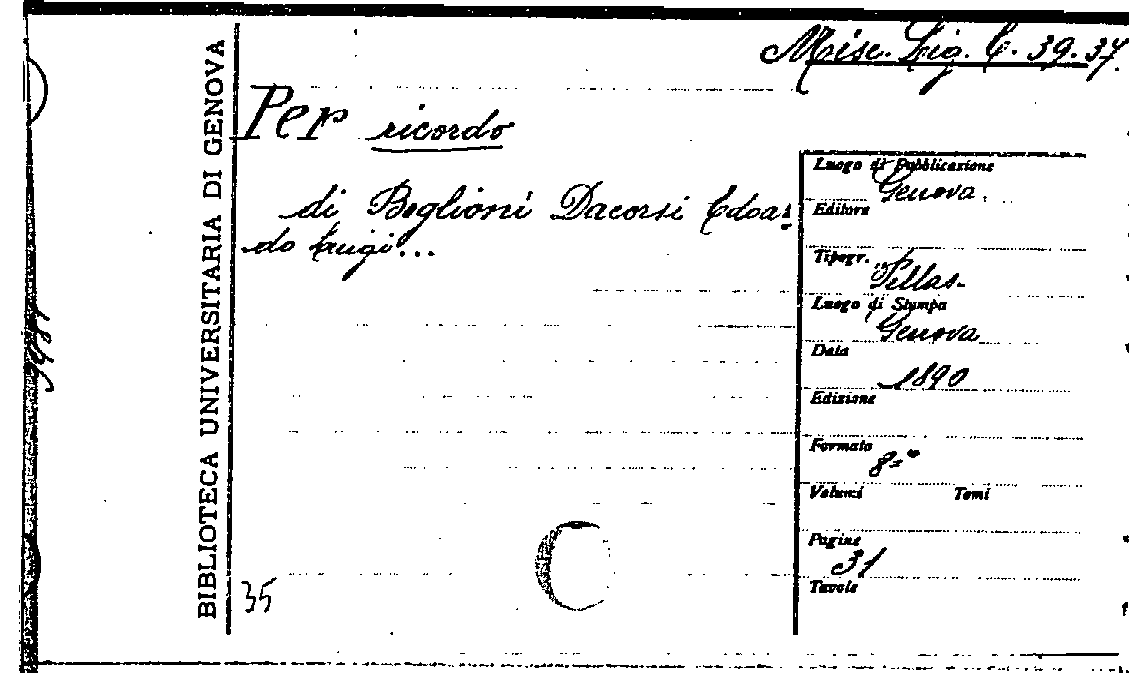 Misc. Lig. C. 39. 37.
BIBLIOTECA UNIVERSITARIA DI GENOVA
Per ricordo
di Beglioni Dacorsi Edoar
do Luigi...
Luogo di Pubblicazione
Genova.
Editore
Tipogr.
Pellas.
Luogo di Stampa
Genova
Data
1890
Edizione
Formato
8-°
Volumi Tomi
Pagine
31
Tavole
35